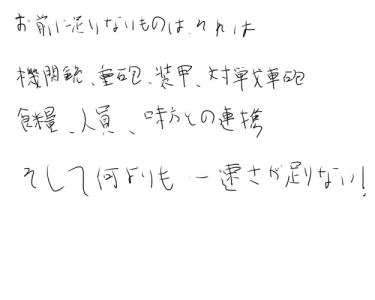 お前に足りないものは、それは
機関銃、重砲、装甲、対戦車砲
食糧、人員、味方との連携
そして何よりも ー速さが足りない!